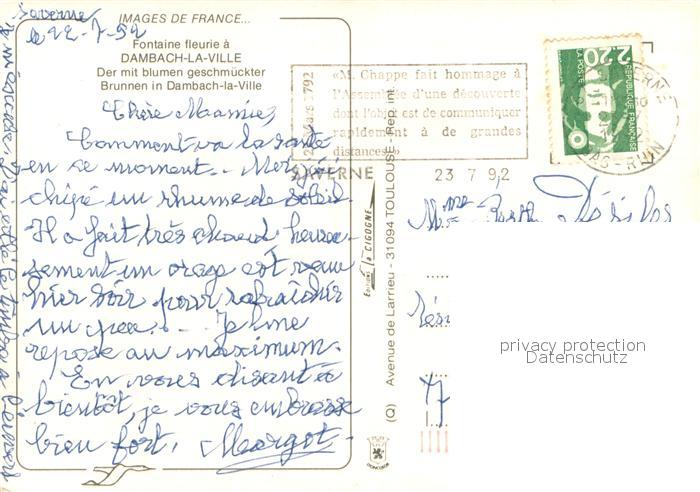 Saverne
le 22-7-92
IMAGES DE FRANCE...
Fontaine fleurie à
DAMBACH-LA-VILLE
Der mit blumen geschmückter
Brunnen in Dambach-la-Ville
Chère Mamie,
Comment va la santé
en ce moment.. Moi j'ai
chipé un rhume de soleil.
Il a fait très chaud heureu-
sement un orage est venu
hier soir pour rafraîchir
un peu... Je me
repose au maximum.
En vous disant à
bientôt, je vous embrasse
bien fort, Margot
le timbre à l'envers
«M. Chappe fait hommage à
l'Assemblée d'une découverte
dont l'objet est de communiquer
rapidement à de grandes
distances»
SAVERNE
23 7 92
2,20
LA POSTE
REPUBLIQUE FRANÇAISE
BAS-RHIN
Editions la CIGOGNE
(Q) Avenue de Larrieu - 31094 TOULOUSE - Rep. int.
Mme
Rési
47
privacy protection
Datenschutz